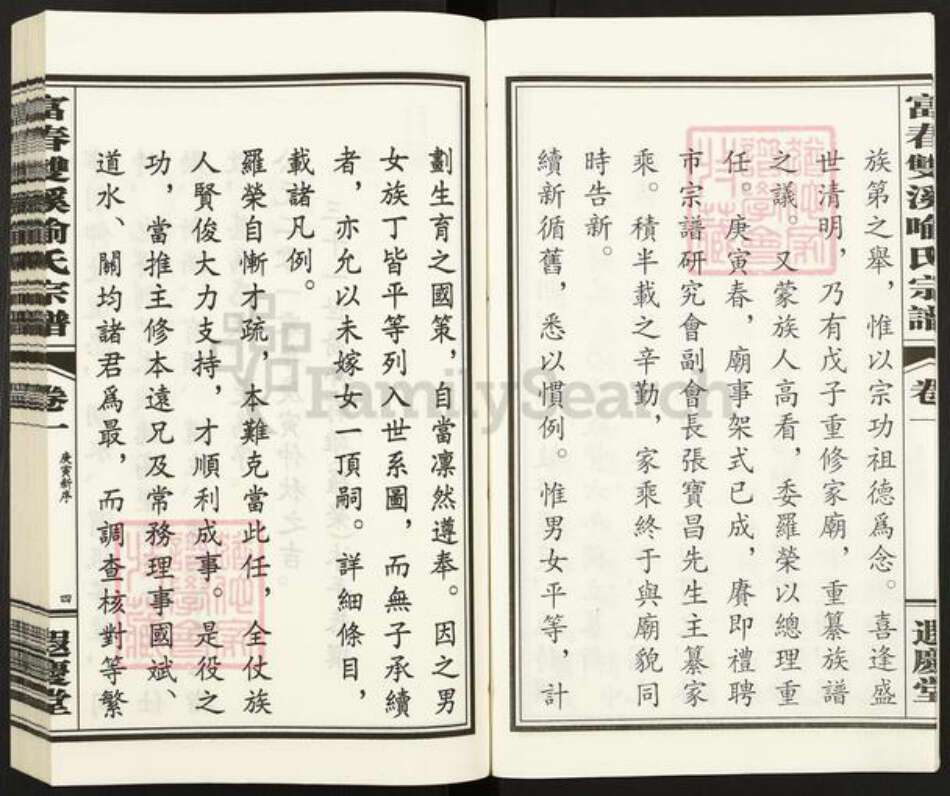 富春雙溪喻氏宗譜
卷一
遐慶堂
族第之舉，惟以宗功祖德爲念。喜逢盛
世清明，乃有戊子重修家廟，重纂族譜
之議。又蒙族人高看，委羅榮以總理重
任。庚寅春，廟事架式已成，賡即禮聘
市宗譜研究會副會長張寶昌先生主纂家
乘。積半載之辛勤，家乘終于與廟貌同
時告新。
續新循舊，悉以慣例。惟男女平等，計
劃生育之國策，自當凛然遵奉。因之男
女族丁皆平等列入世系圖，而無子承續
者，亦允以未嫁女一頂嗣。詳細條目，
載諸凡例。
羅榮自慚才疏，本難克當此任，全仗族
人賢俊大力支持，才順利成事。是役之
功，當推主修本遠兄及常務理事國斌、
道水、關均諸君爲最，而調查核對等繁
富春雙溪喻氏宗譜
卷一
庚寅新序
四
遐慶堂
FamilySearch